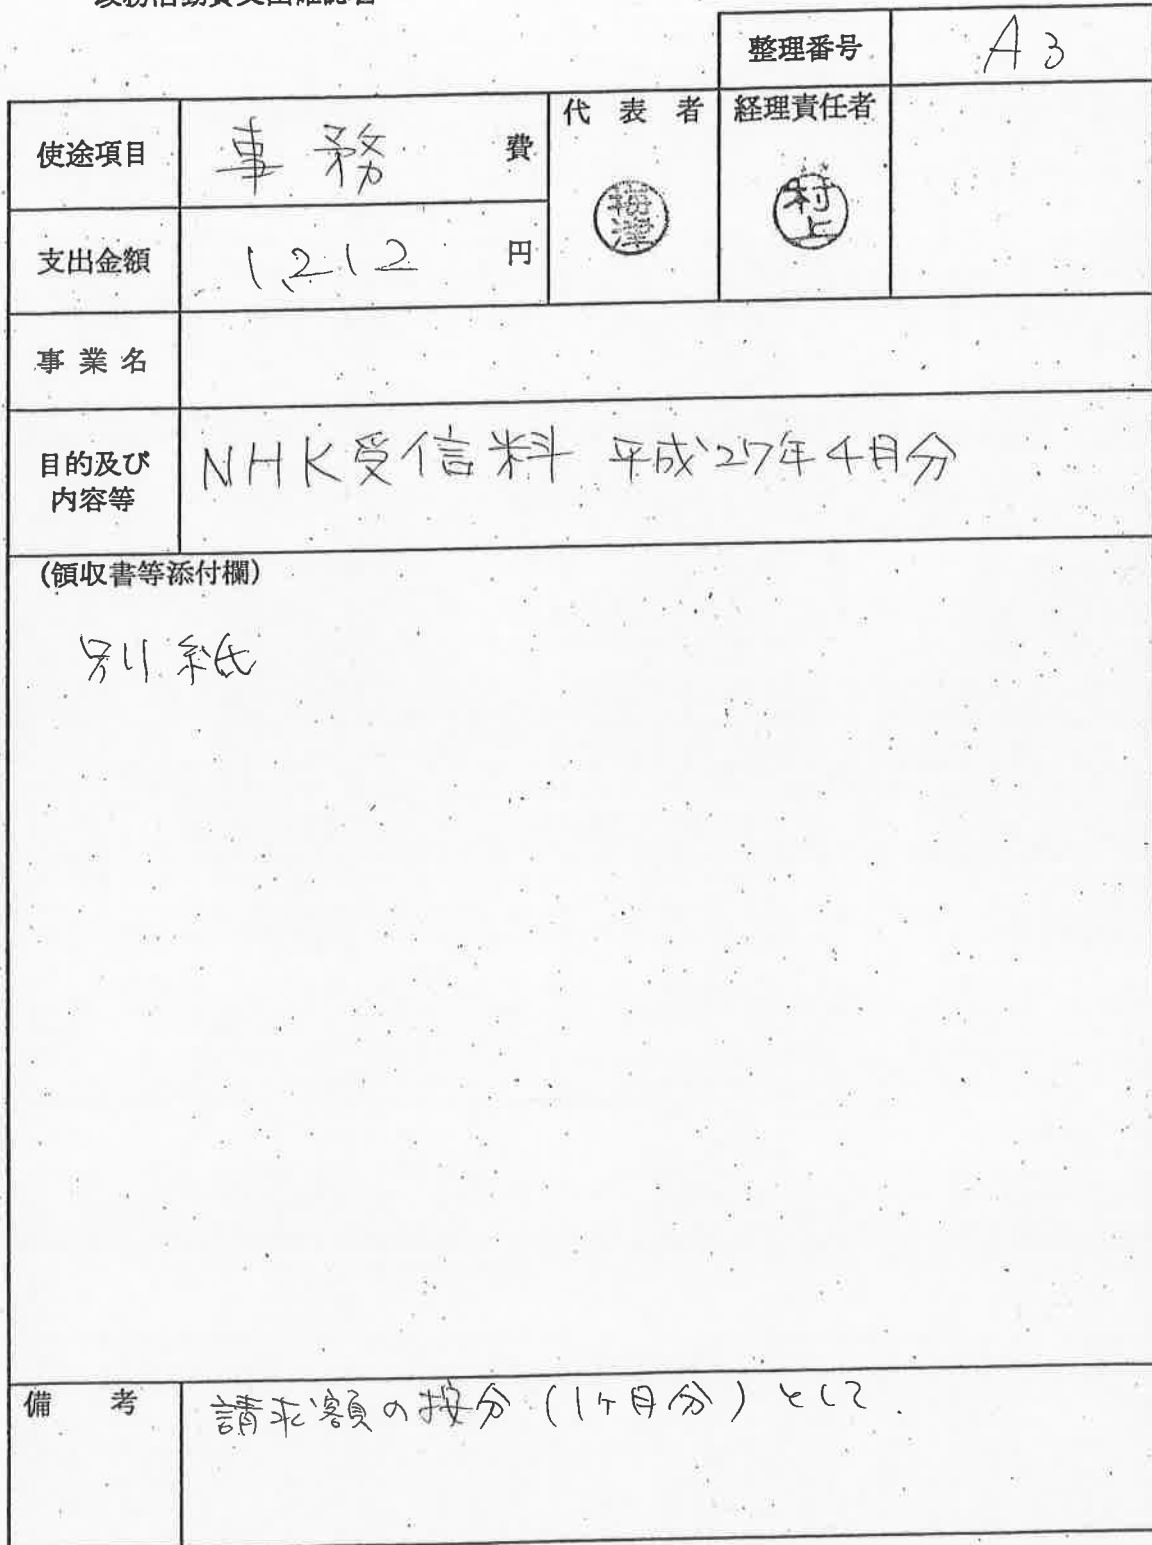 整理番号 A3
使途項目 事務 費
代表者 経理責任者
梅津
村上
支出金額 1,212 円
事業名
目的及び内容等 NHK受信料 平成27年4月分
(領収書等添付欄)
別紙
備考 請求額の按分(1ヶ月分)として.